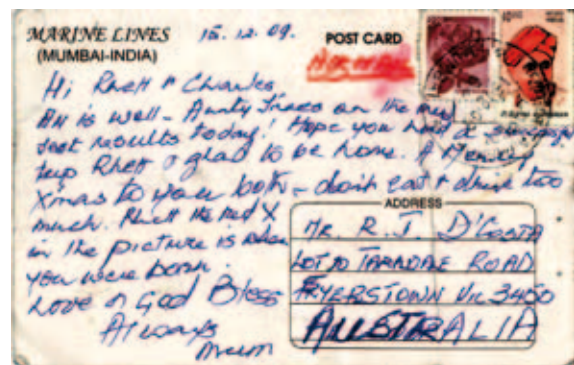 MARINE LINES
(MUMBAI-INDIA)
15.12.09.
POST CARD
AIR MAIL
Hi Rhett & Charles
All is well - Aunty Traes on the mend
test results today! Hope you had a
trip Rhett & glad to be home. A Merry
Xmas to you both - don't eat & drink too
much. Rhett the red X
in the picture is when
you were born.
Love & God Bless
Always
Mum
ADDRESS
Mr. R. J. D'COSTA
LOT 20 TARADALE ROAD
FRYERSTOWN VIC 3450
AUSTRALIA